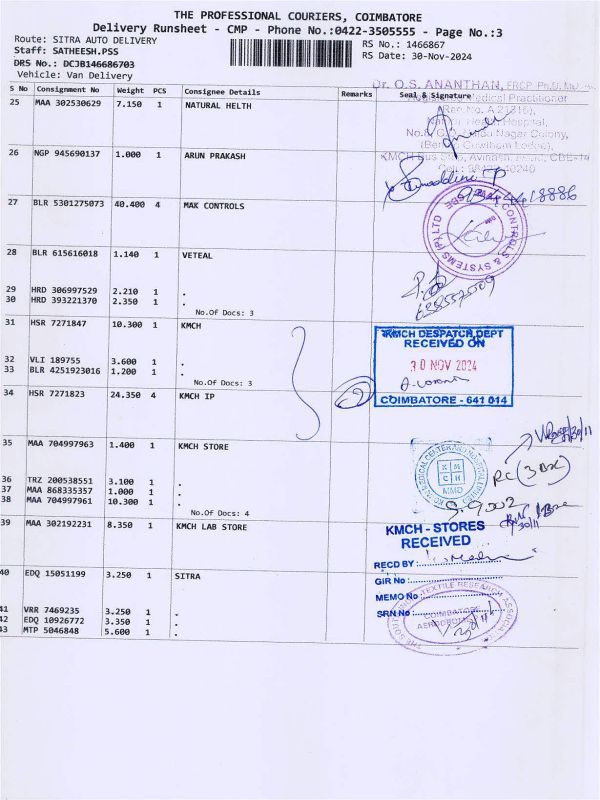 THE PROFESSIONAL COURIERS, COIMBATORE
Delivery Runsheet - CMP - Phone No.:0422-3505555 - Page No.:3
Route: SITRA AUTO DELIVERY
RS No.: 1466867
Staff: SATHEESH.PSS
RS Date: 30-Nov-2024
DRS No.: DCJB146686703
Vehicle: Van Delivery
S No Consignment No Weight PCS Consignee Details Remarks Seal & Signature
Dr. O.S. ANANTHAN, FRCP
Medical Practitioner
25 MAA 302530629 7.150 1 NATURAL HELTH
Hospital,
Nagar Colony,
26 NGP 945690137 1.000 1 ARUN PRAKASH
KMCH
27 BLR 5301275073 40.400 4 MAK CONTROLS
CONTROLS & SYSTEMS (P) LTD
28 BLR 615616018 1.140 1 VETEAL
29 HRD 306997529 2.210 1 .
30 HRD 393221370 2.350 1 .
No.Of Docs: 3
31 HSR 7271847 10.300 1 KMCH
KMCH DESPATCH DEPT
RECEIVED ON
30 NOV 2024
COIMBATORE - 641 014
32 VLI 189755 3.600 1 .
33 BLR 4251923016 1.200 1 .
No.Of Docs: 3
34 HSR 7271823 24.350 4 KMCH IP
35 MAA 704997963 1.400 1 KMCH STORE
KMCH
MMD
36 TRZ 200538551 3.100 1 .
37 MAA 868335357 1.000 1 .
38 MAA 704997961 10.300 1 .
No.Of Docs: 4
39 MAA 302192231 8.350 1 KMCH LAB STORE
KMCH - STORES
RECEIVED
RECD BY :
40 EDQ 15051199 3.250 1 SITRA
GIR No :
MEMO No :
SRN No :
COIMBATORE
41 VRR 7469235 3.250 1 .
42 EDQ 10926772 3.350 1 .
43 MTP 5046848 5.600 1 .